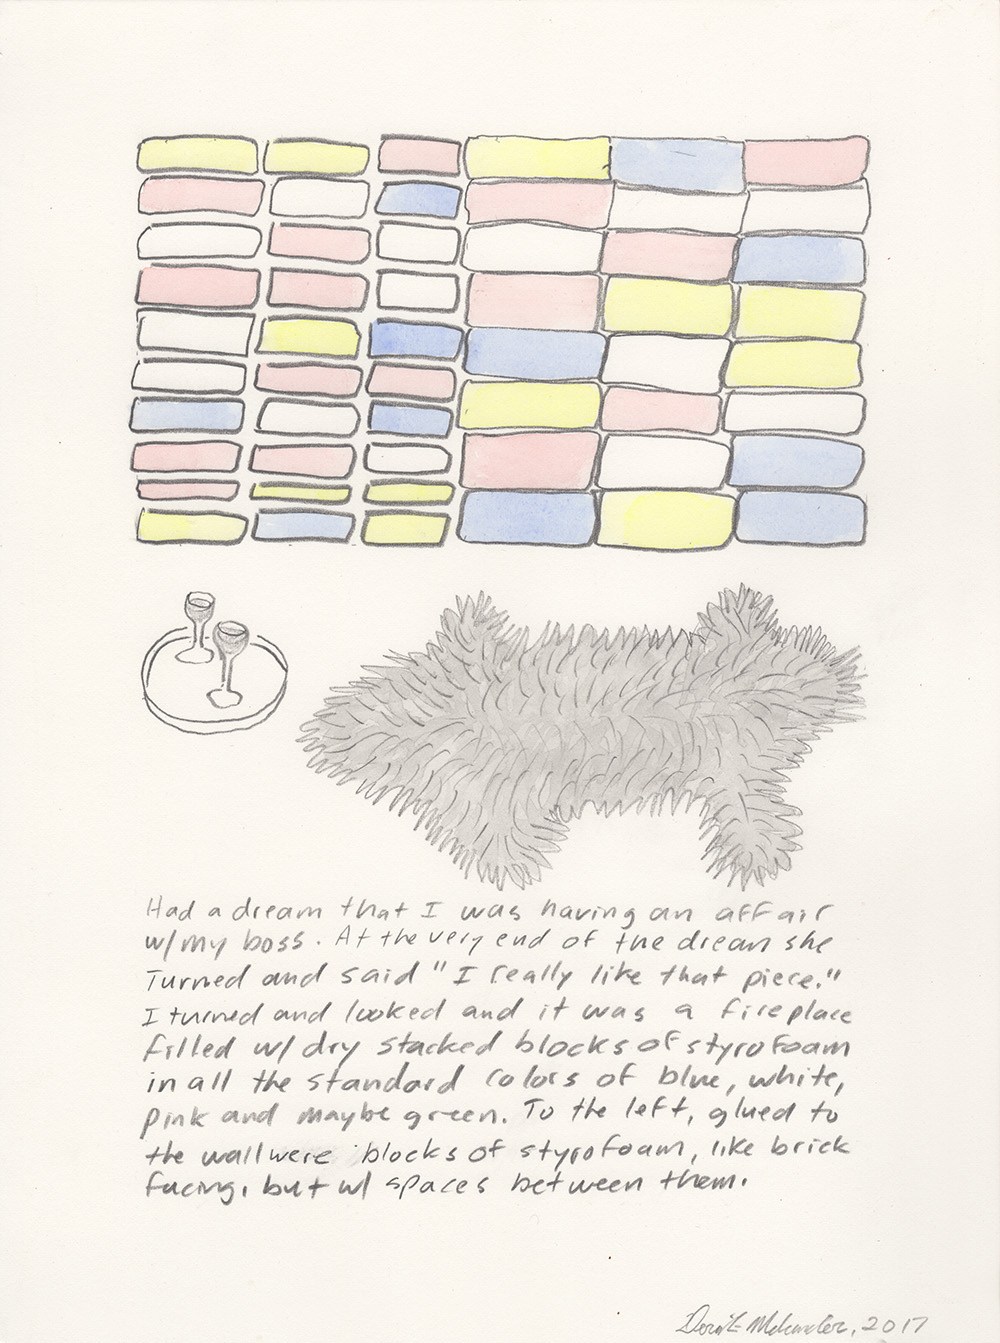 Had a dream that I was having an affair
w/ my boss. At the very end of the dream she
Turned and said "I really like that piece."
I turned and looked and it was a fireplace
filled w/ dry stacked blocks of styrofoam
in all the standard colors of blue, white,
pink and maybe green. To the left, glued to
the wall were blocks of styrofoam, like brick
facing, but w/ spaces between them.
2017